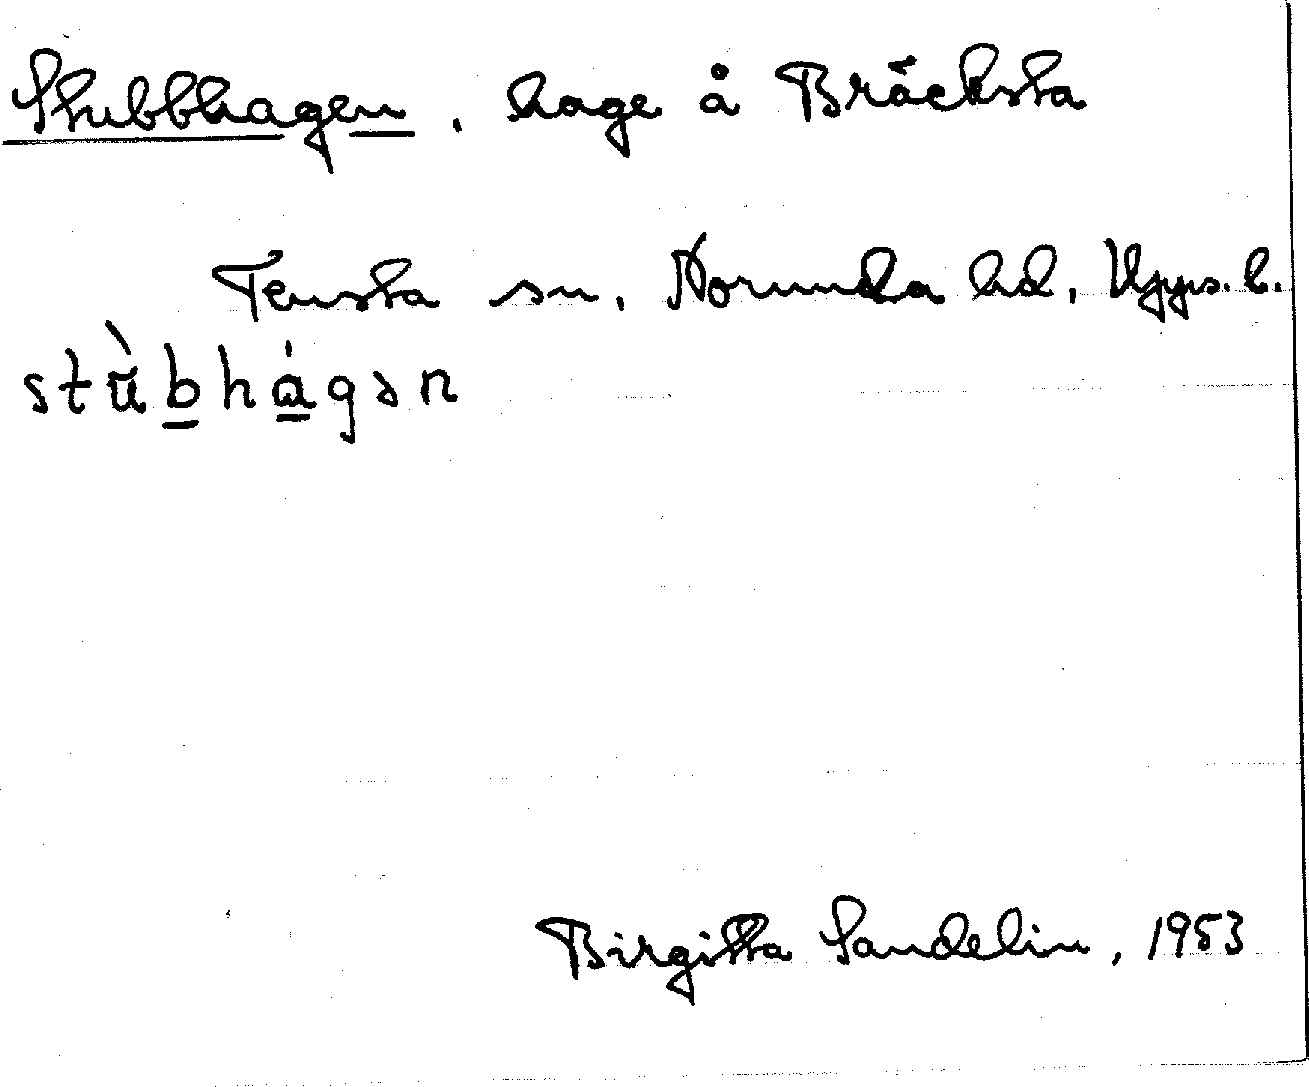 Stubbhagen, hage å Bräcksta
Tensta sn, Norunda hd, Upps. l.
stùbhágən
Birgitta Sandelin, 1953